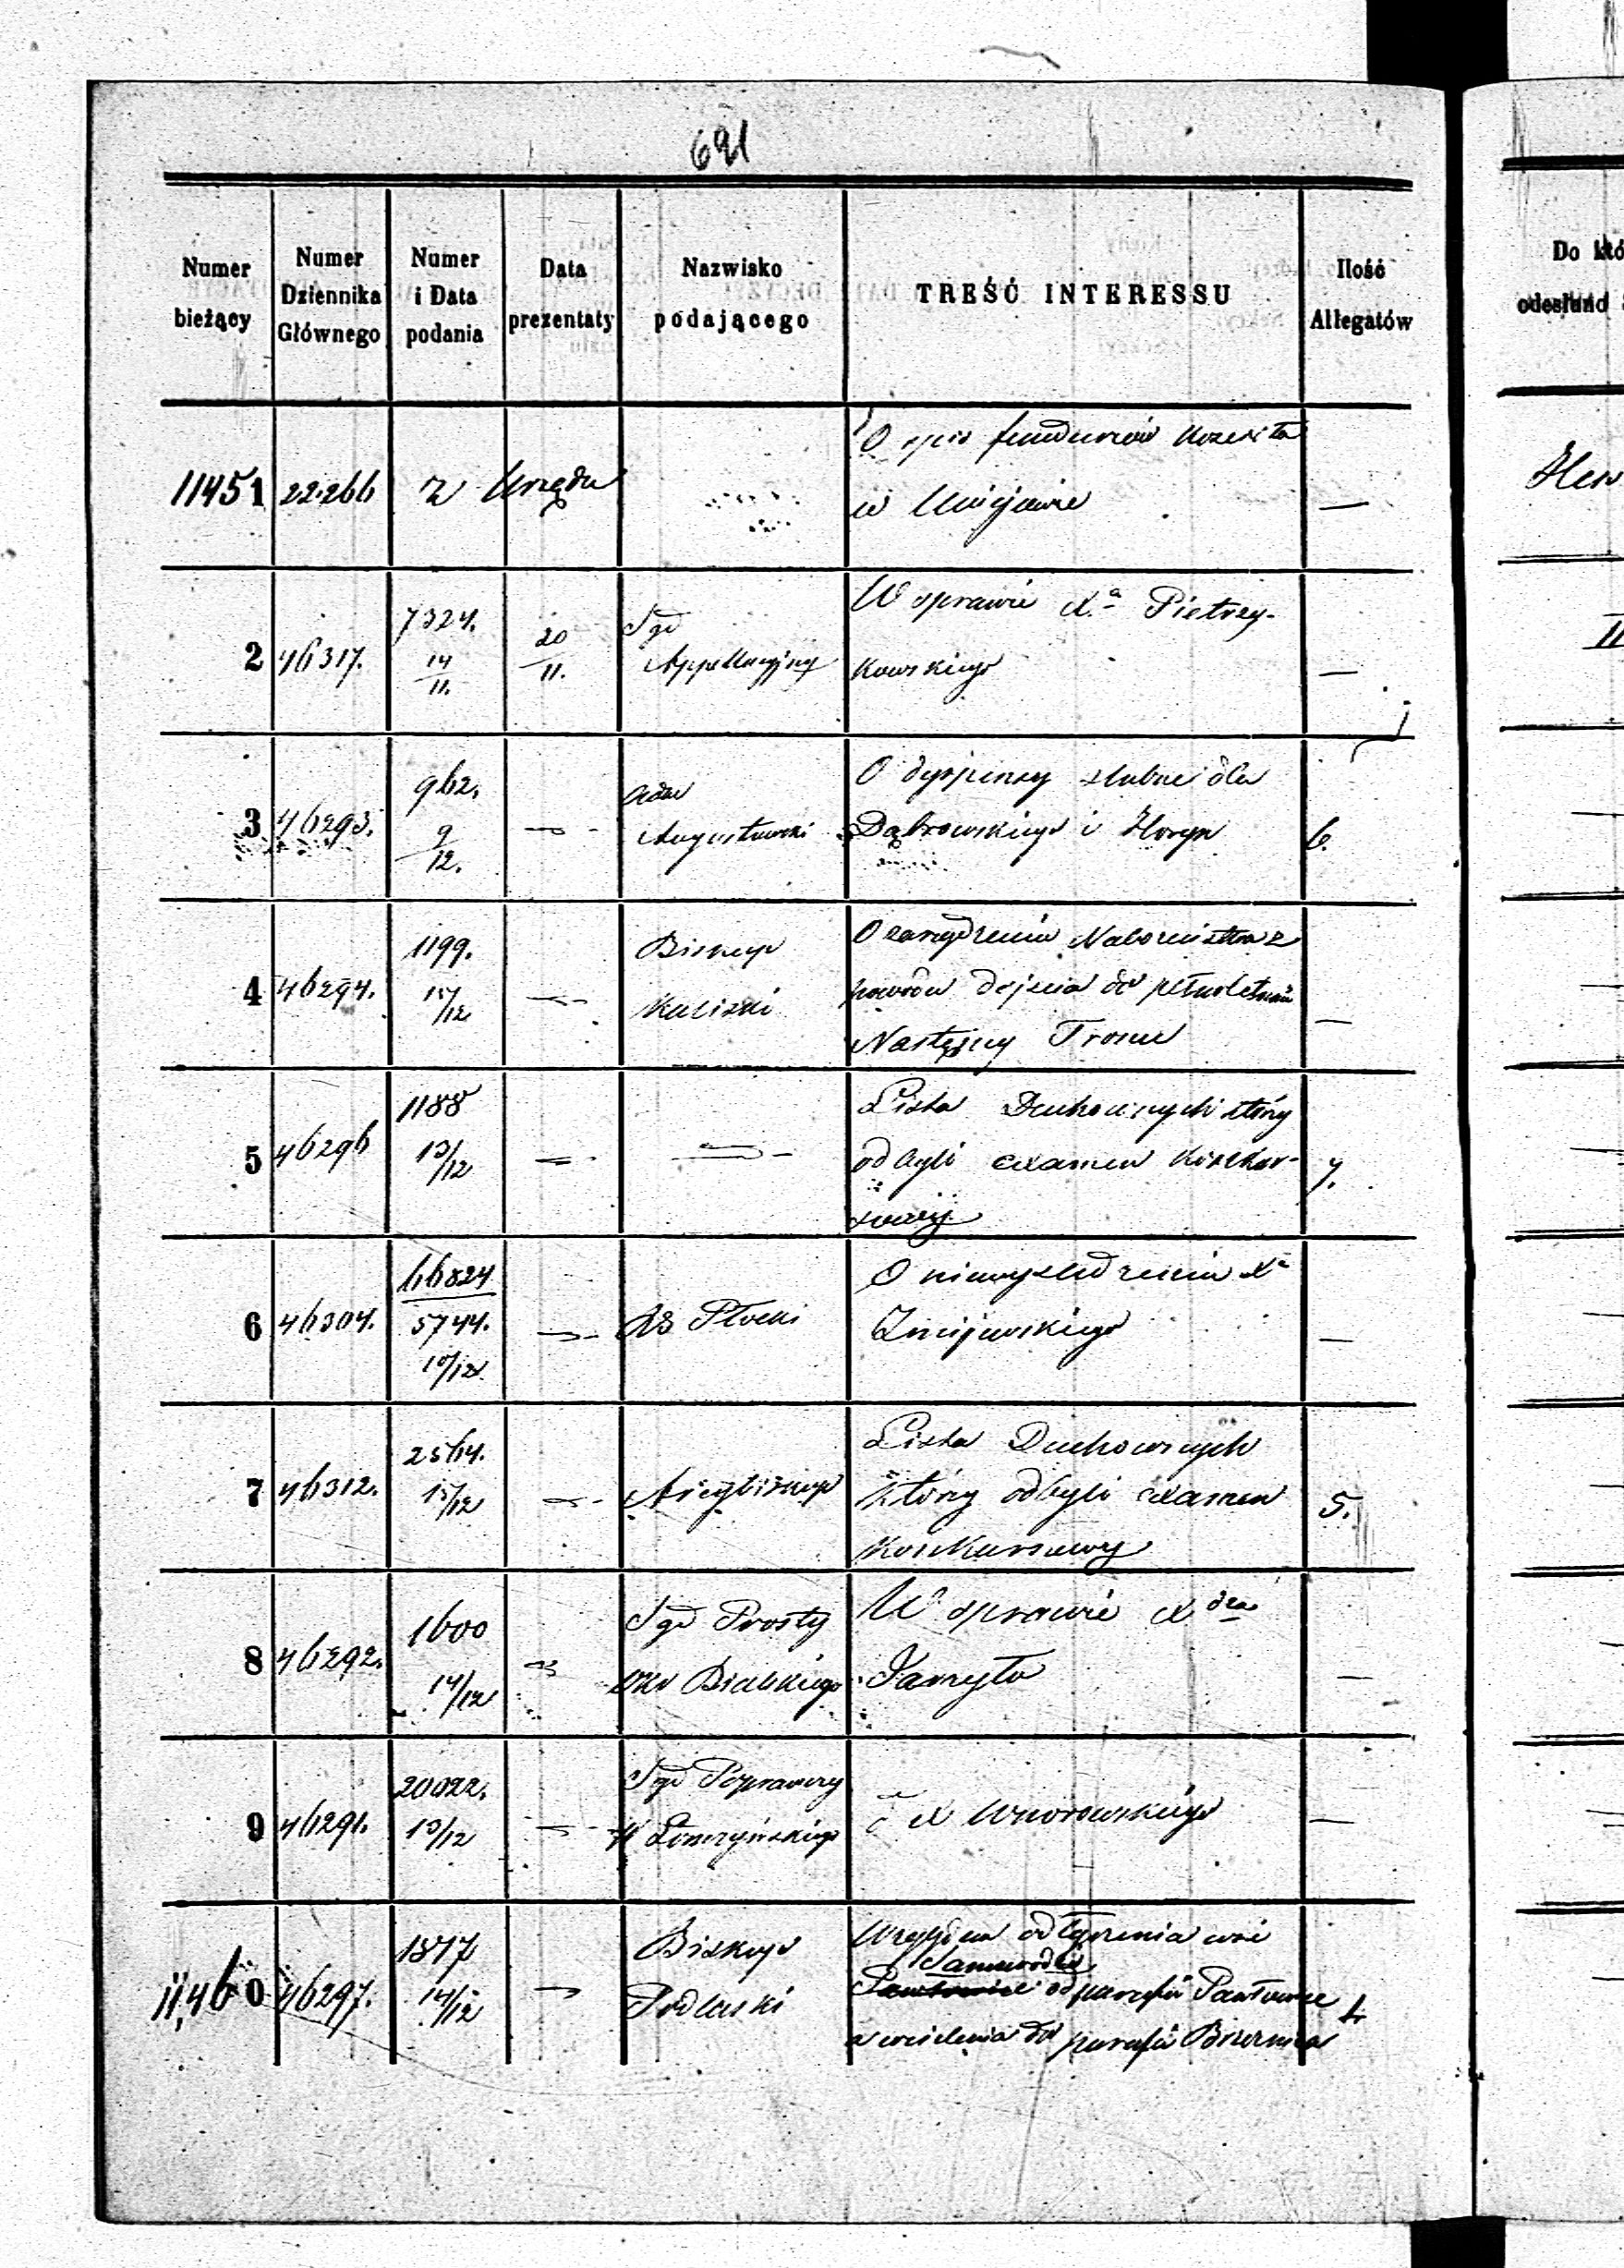 691
Numer bieżący
Numer Dziennika Głównego
Numer i Data podania
Data prezentaty
Nazwisko podającego
TREŚĆ INTERESSU
Ilość Allegatów
11451 22266 z Urzędu
O spis funduszów
w Uniejowie —
2 46317. 7324. 14/11. 20/11.
Sąd
Appellacyjny
W sprawie Xa Pietrzy-
kowskiego —
3 46293. 962. 9/12. —
Adm
Augustowski
O dyspensy ślubne dla
Dąbrowskiego i 6.
4 46294. 1199. 15/12 —
Biskup
Kaliski
O zarządzeniu Nabożeństwa z
powodu dojścia do pełnoletności
Następcy Tronu —
5 46296 1188 13/12 — —
Lista Duchownych którzy
odbyli examen konkur-
sowy 7.
6 46304. 66824 5744. 10/12 —
RG Płocki
O niewyśledzeniu Xa
Żmijewskiego —
7 46312. 2564. 15/12 —
Arcybiskup
Lista Duchownych
którzy odbyli examen
konkursowy 5.
8 46292. 1600 14/12 —
Sąd Prosty
Okr Bialskiego
W sprawie Xdza
Jarzyło —
9 46291. 20022. 13/12 —
Sąd Poprawczy
W Łomżyńskiego
X Wnorowskiego —
11,460 46297. 1877 14/12 —
Biskup
Podlaski
Względem odłączenia wsi
Samwodzie
Pawłowice od parafii Pawłowice
a wcielenia do parafii Brzeźnica 4
Do któ
odesłano